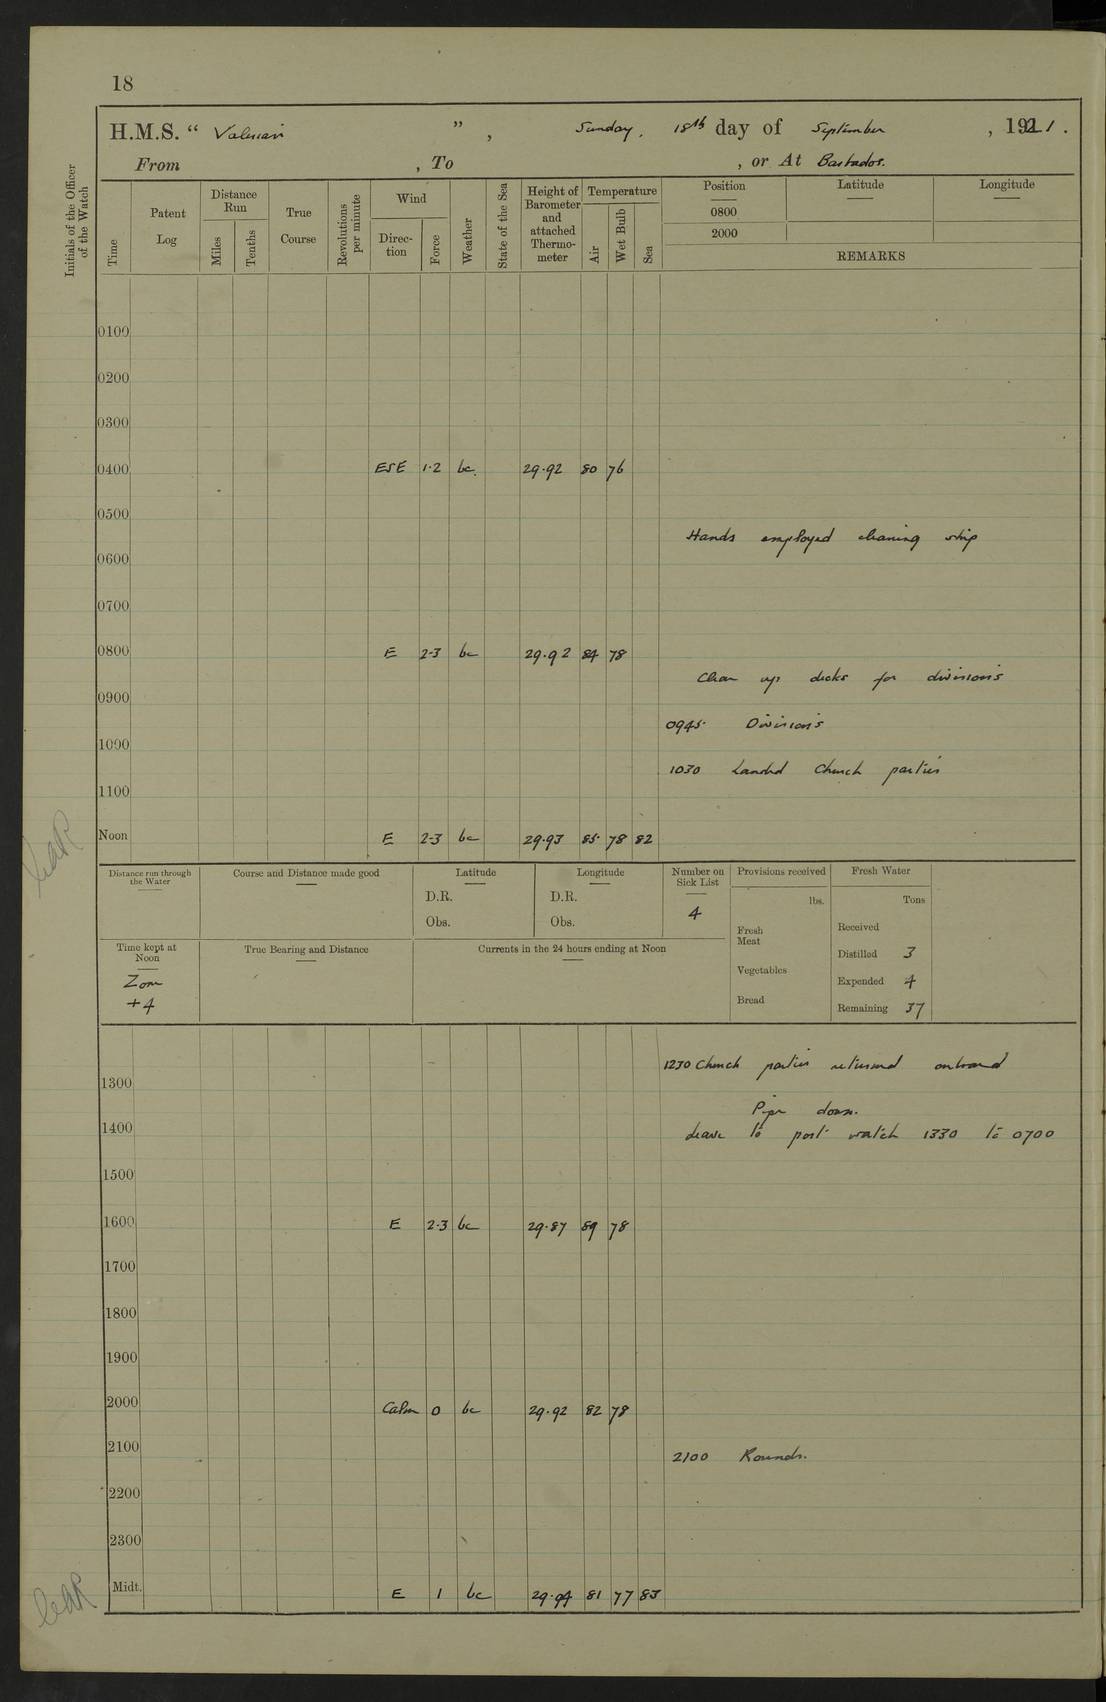 18
H.M.S. “ Valerian ” , Sunday, 18th day of September , 1921.
From , To , or At Barbados.
Initials of the Officer of the Watch
Time
Patent Log
Distance Run
Miles
Tenths
True Course
Revolutions per minute
Wind
Direction
Force
Weather
State of the Sea
Height of Barometer and attached Thermometer
Temperature
Air
Wet Bulb
Sea
Position
0800
2000
Latitude
Longitude
REMARKS
0100
0200
0300
0400 ESE 1·2 bc. 29·92 80 76
0500
Hands employed cleaning ship
0600
0700
0800 E 2-3 bc 29·92 84 78
Clear up decks for divisions
0900
0945· Divisions
1000
1030 Landed Church parties
1100
Noon E 2-3 bc 29·93 85· 78 82
Distance run through the Water
Course and Distance made good
Latitude
D.R.
Obs.
Longitude
D.R.
Obs.
Number on Sick List
4
Provisions received
lbs.
Fresh Meat
Vegetables
Bread
Fresh Water
Tons
Received
Distilled 3
Expended 4
Remaining 37
Time kept at Noon
Zone
+4
True Bearing and Distance
Currents in the 24 hours ending at Noon
1230 Church parties returned onboard
1300
Pipe down.
1400
Leave to port watch 1330 to 0700
1500
1600 E 2·3 bc 29·87 89 78
1700
1800
1900
2000 Calm 0 bc 29·92 82 78
2100
2100 Rounds.
2200
2300
Midt. E 1 bc 29·94 81 77 83